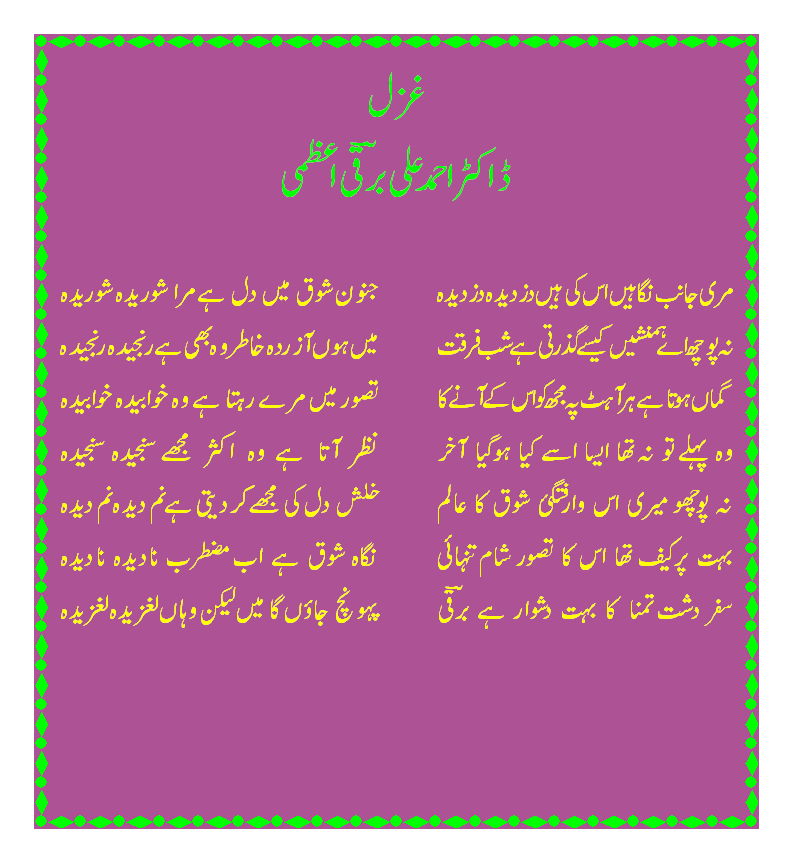 غزل
ڈاکٹر احمد علی برقیؔ اعظمی
مری جانب نگاہیں اس کی ہیں دزدیدہ دزدیدہ جنون شوق میں دل ہے مرا شوریدہ شوریدہ
نہ پوچھ اے ہمنشیں کیسے گذرتی ہے شب فرقت میں ہوں آزردہ خاطر وہ بھی ہے رنجیدہ رنجیدہ
گماں ہوتا ہے ہر آہٹ پہ مجھ کو اس کے آنے کا تصور میں مرے رہتا ہے وہ خوابیدہ خوابیدہ
وہ پہلے تو نہ تھا ایسا اسے کیا ہوگیا آخر نظر آتا ہے وہ اکثر مجھے سنجیدہ سنجیدہ
نہ پوچھو میری اس وارفتگئ شوق کا عالم خلش دل کی مجھے کر دیتی ہے نم دیدہ نم دیدہ
بہت پرکیف تھا اس کا تصور شام تنہائی نگاہ شوق ہے اب مضطرب نادیدہ نادیدہ
سفر دشت تمنا کا بہت دشوار ہے برقیؔ پہونچ جاؤں گا میں لیکن وہاں لغزیدہ لغزیدہ